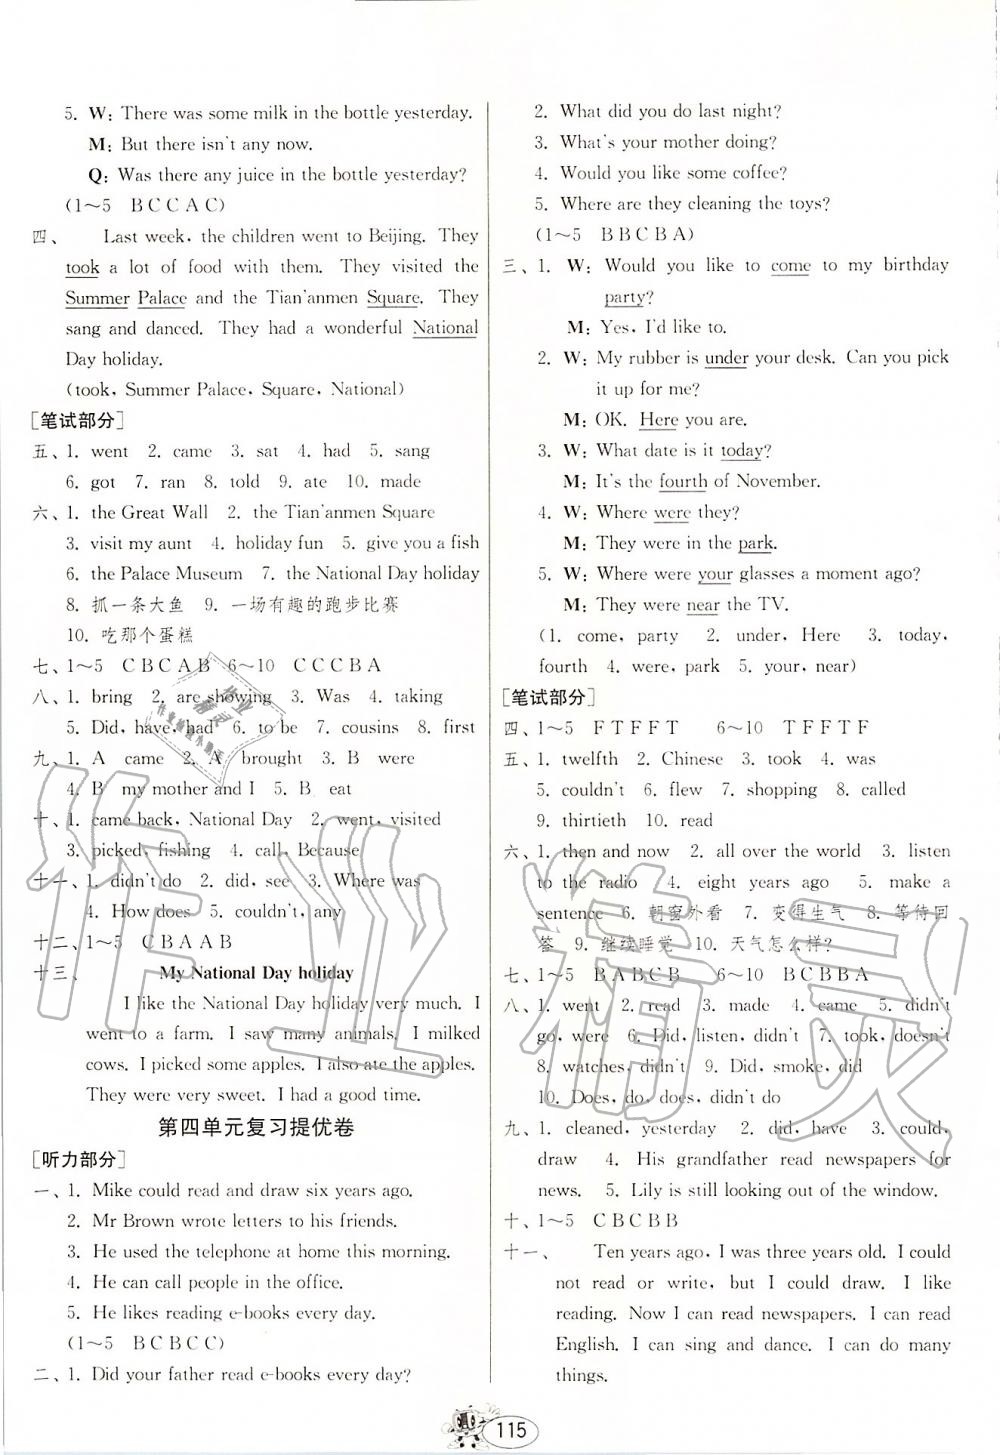 5. W: There was some milk in the bottle yesterday.
M: But there isn't any now.
Q: Was there any juice in the bottle yesterday?
(1～5 B C C A C)
四、 Last week, the children went to Beijing. They
took a lot of food with them. They visited the
Summer Palace and the Tian'anmen Square. They
sang and danced. They had a wonderful National
Day holiday.
(took, Summer Palace, Square, National)
[笔试部分]
五、1. went 2. came 3. sat 4. had 5. sang
6. got 7. ran 8. told 9. ate 10. made
六、1. the Great Wall 2. the Tian'anmen Square
3. visit my aunt 4. holiday fun 5. give you a fish
6. the Palace Museum 7. the National Day holiday
8. 抓一条大鱼 9. 一场有趣的跑步比赛
10. 吃那个蛋糕
七、1～5 C B C A B 6～10 C C C B A
八、1. bring 2. are showing 3. Was 4. taking
5. Did, have, had 6. to be 7. cousins 8. first
九、1. A came 2. A brought 3. B were
4. B my mother and I 5. B eat
十、1. came back, National Day 2. went, visited
3. picked, fishing 4. call, Because
十一、1. didn't do 2. did, see 3. Where was
4. How does 5. couldn't, any
十二、1～5 C B A A B
十三、 My National Day holiday
I like the National Day holiday very much. I
went to a farm. I saw many animals. I milked
cows. I picked some apples. I also ate the apples.
They were very sweet. I had a good time.
第四单元复习提优卷
[听力部分]
一、1. Mike could read and draw six years ago.
2. Mr Brown wrote letters to his friends.
3. He used the telephone at home this morning.
4. He can call people in the office.
5. He likes reading e-books every day.
(1～5 B C B C C)
二、1. Did your father read e-books every day?
2. What did you do last night?
3. What's your mother doing?
4. Would you like some coffee?
5. Where are they cleaning the toys?
(1～5 B B C B A)
三、1. W: Would you like to come to my birthday
party?
M: Yes, I'd like to.
2. W: My rubber is under your desk. Can you pick
it up for me?
M: OK. Here you are.
3. W: What date is it today?
M: It's the fourth of November.
4. W: Where were they?
M: They were in the park.
5. W: Where were your glasses a moment ago?
M: They were near the TV.
(1. come, party 2. under, Here 3. today,
fourth 4. were, park 5. your, near)
[笔试部分]
四、1～5 F T F F T 6～10 T F F T F
五、1. twelfth 2. Chinese 3. took 4. was
5. couldn't 6. flew 7. shopping 8. called
9. thirtieth 10. read
六、1. then and now 2. all over the world 3. listen
to the radio 4. eight years ago 5. make a
sentence 6. 朝窗外看 7. 变得生气 8. 等待回
答 9. 继续睡觉 10. 天气怎么样?
七、1～5 B A B C B 6～10 B C B B A
八、1. went 2. read 3. made 4. came 5. didn't
go, were 6. Did, listen, didn't 7. took, doesn't
8. watches, didn't 9. Did, smoke, did
10. Does, do, does, didn't do
九、1. cleaned, yesterday 2. did, have 3. could,
draw 4. His grandfather read newspapers for
news. 5. Lily is still looking out of the window.
十、1～5 C B C B B
十一、 Ten years ago, I was three years old. I could
not read or write, but I could draw. I like
reading. Now I can read newspapers. I can read
English. I can sing and dance. I can do many
things.
115
作业精灵